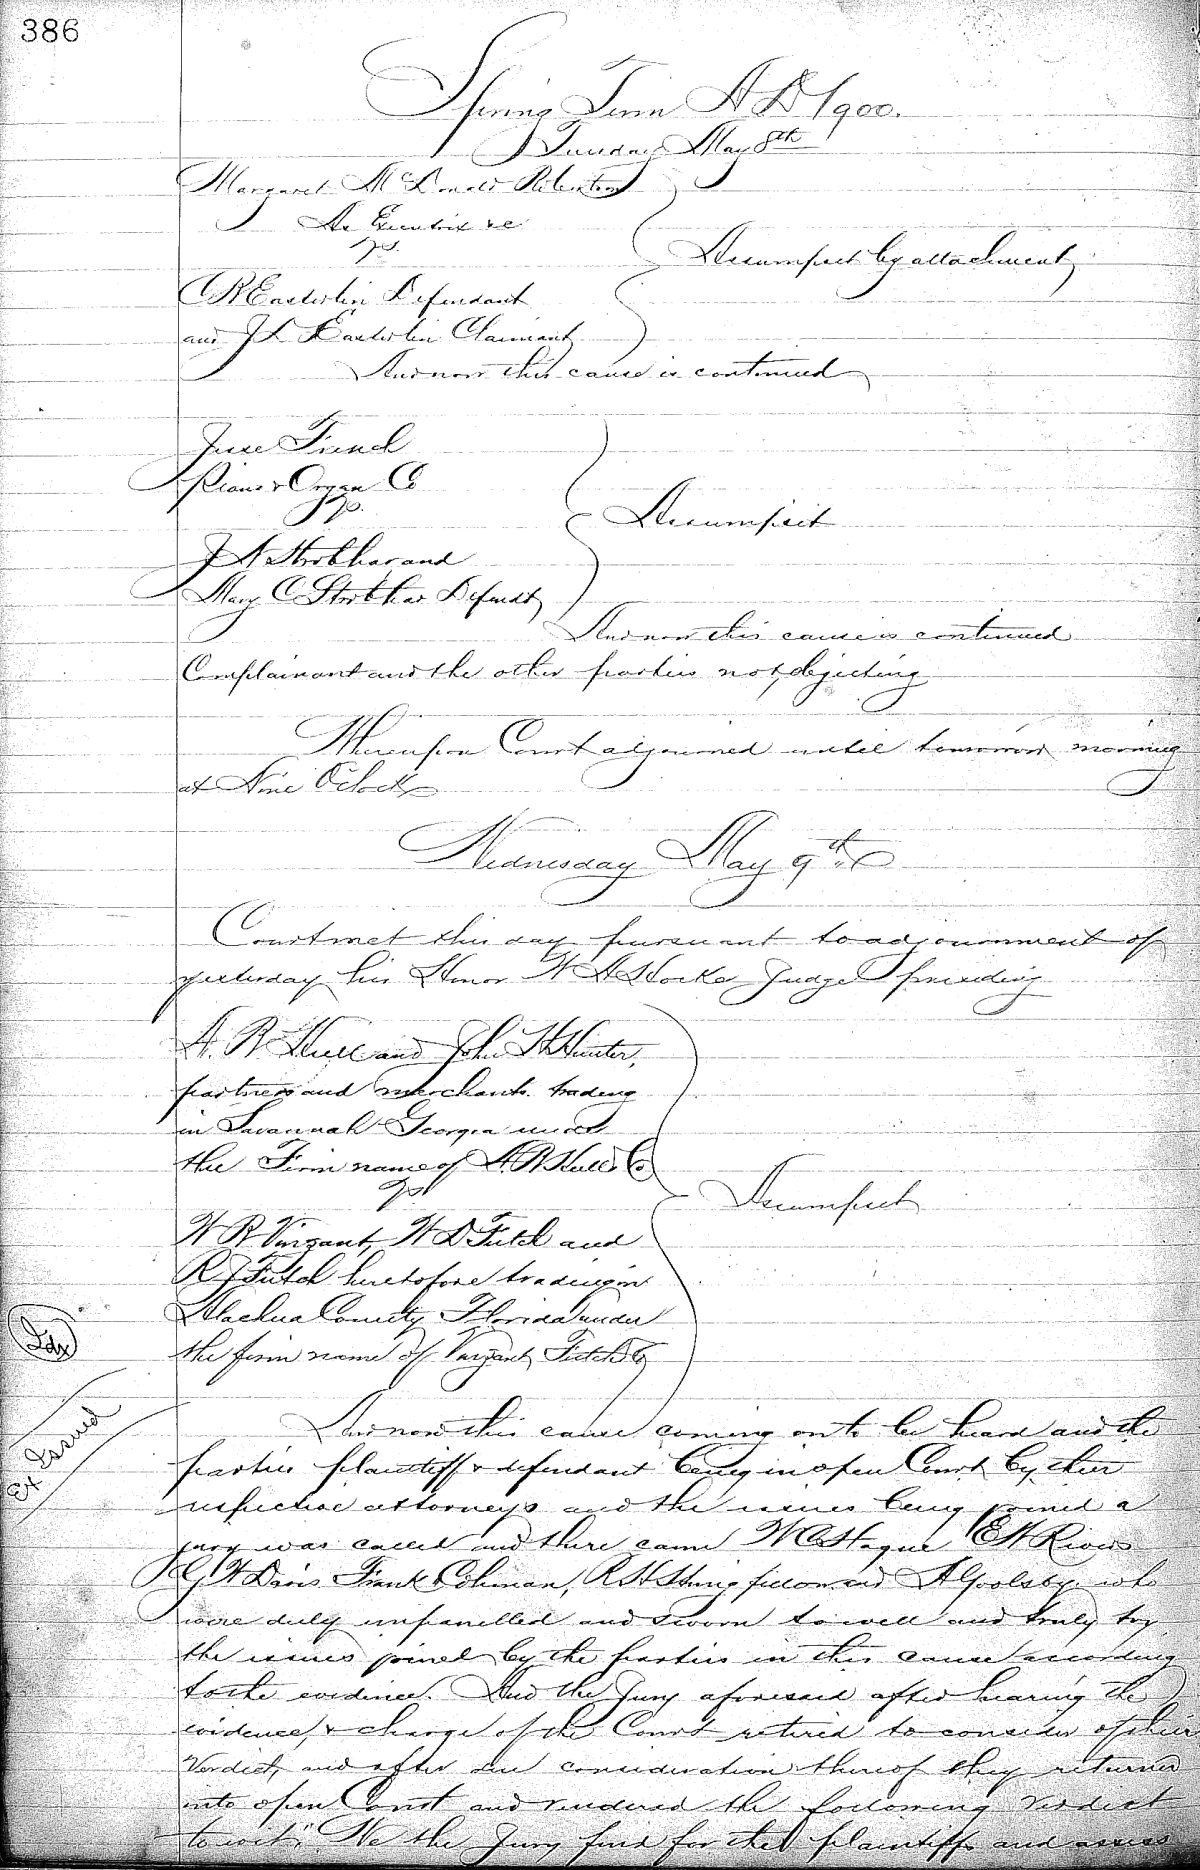 386
Spring Term A D 1900.
Tuesday May 8th
Margaret McDonald Robertson
As Executrix &c
vs.
Assumpsit by attachment
C R Easterlin Defendant
and J L Easterlin Claimant
And now this cause is continued
Jesse French
Piano & Organ Co
vs.
Assumpsit
J A Strobhar and
Mary C Strobhar Defendt
And now this cause is continued
Complainant and the other parties not objecting
Whereupon Court adjourned until tomorrow morning
at Nine O'clock
Wednesday May 9th
Court met this day pursuant to adjournment of
yesterday his Honor W A Hocker Judge presiding
A. R. Hull and John H Hunter,
partners and merchants trading
in Savannah Georgia under
the Firm name of A R Hull & Co
vs
Assumpsit
W R Vinzant, W D Futch and
R J Futch heretofore trading in
Alachua County Florida under
the firm name of Vinzant, Futch & Co
Idx
Ex Issued
And now this cause coming on to be heard and the
parties plaintiff & defendant being in open Court by their
respective attorneys and the issues being joined a
jury was called and there came W C Hague E H Rives
G W Davis Frank Coleman, R H Stringfellow and A Goolsby who
were duly impanelled and sworn to well and truly try
the issues joined by the parties in this cause according
to the evidence. And the Jury aforesaid after hearing the
evidence, & charge of the Court retired to consider of their
Verdict, and after due consideration thereof they returned
into open Court and rendered the following Verdict
to wit; "We the Jury find for the plaintiffs and assess